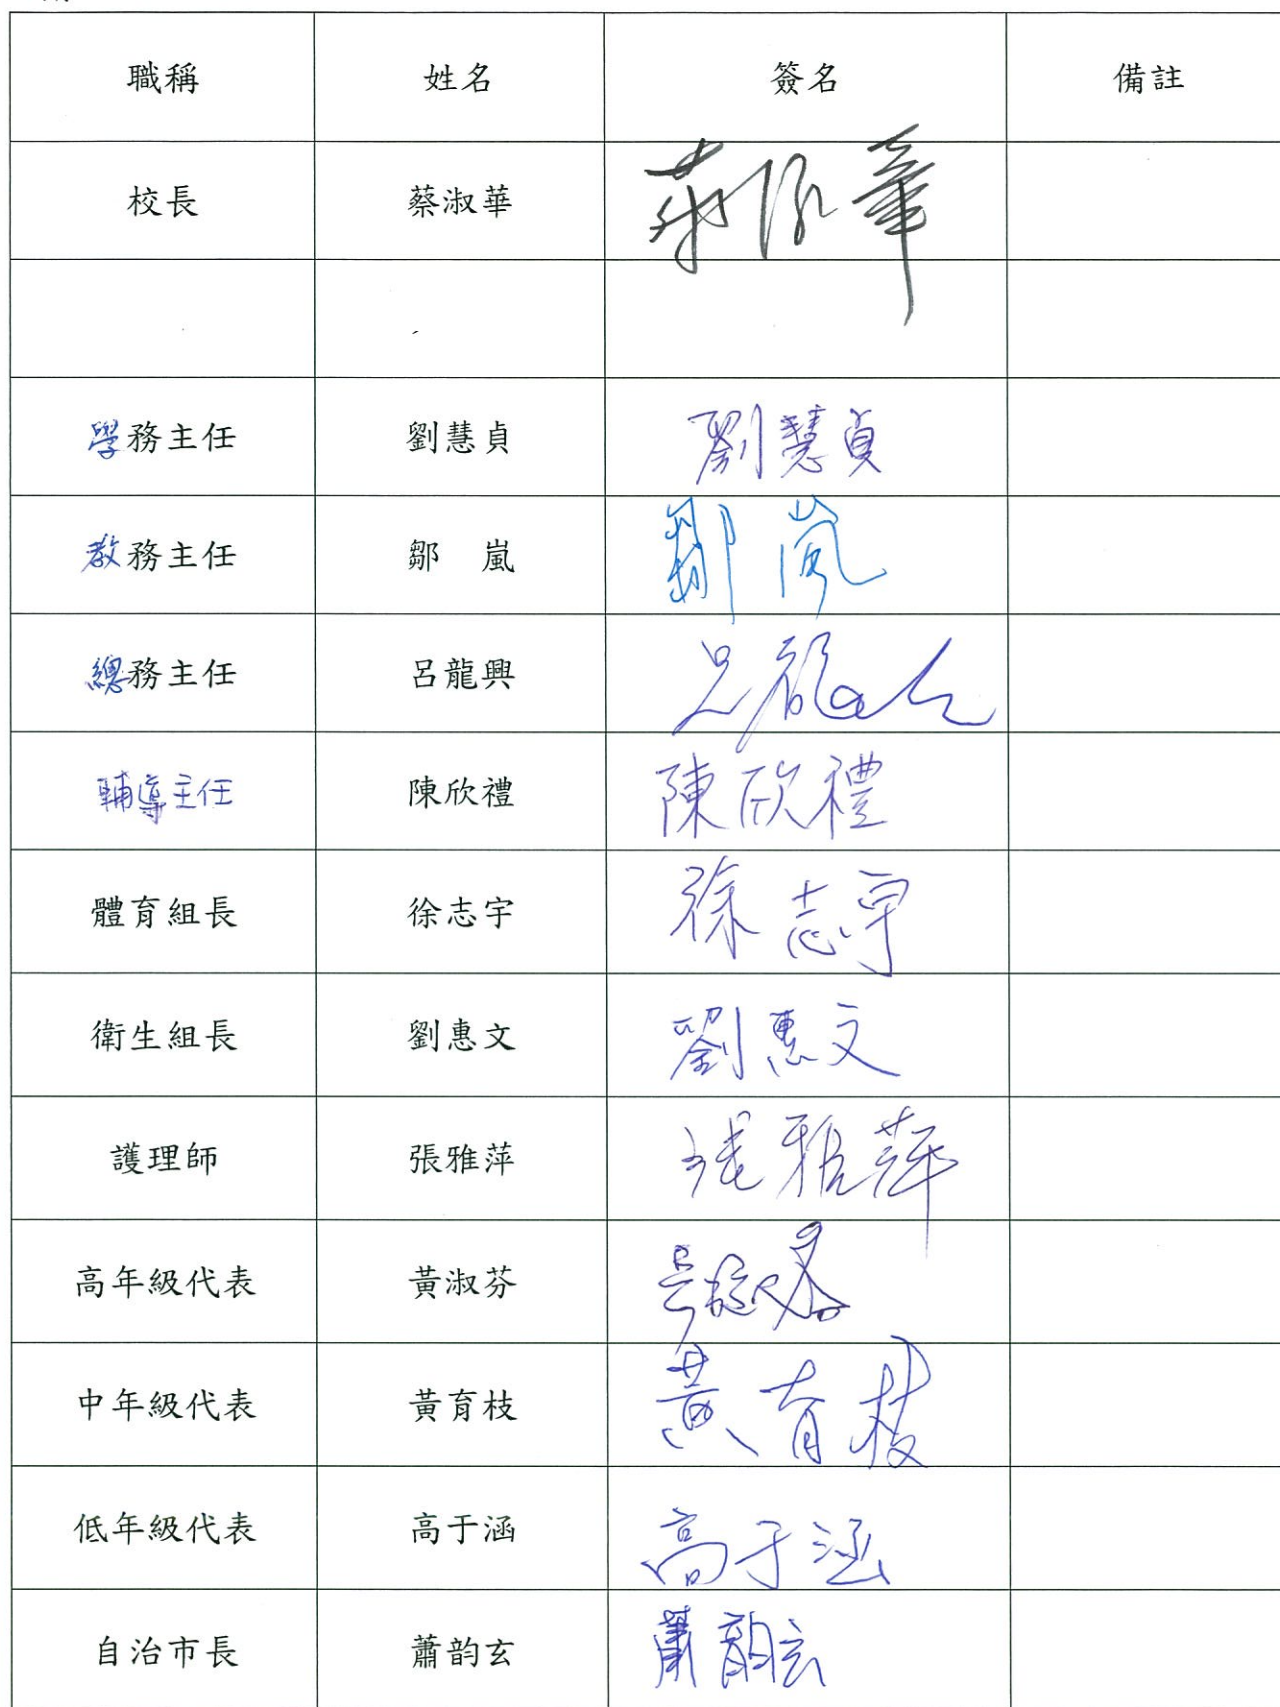 職稱 姓名 簽名 備註
校長 蔡淑華 蔡淑華
學務主任 劉慧貞 劉慧貞
教務主任 鄒 嵐 鄒嵐
總務主任 呂龍興 呂龍興
輔導主任 陳欣禮 陳欣禮
體育組長 徐志宇 徐志宇
衛生組長 劉惠文 劉惠文
護理師 張雅萍 張雅萍
高年級代表 黃淑芬
中年級代表 黃育枝 黃育枝
低年級代表 高于涵 高于涵
自治市長 蕭韵玄 蕭韵玄